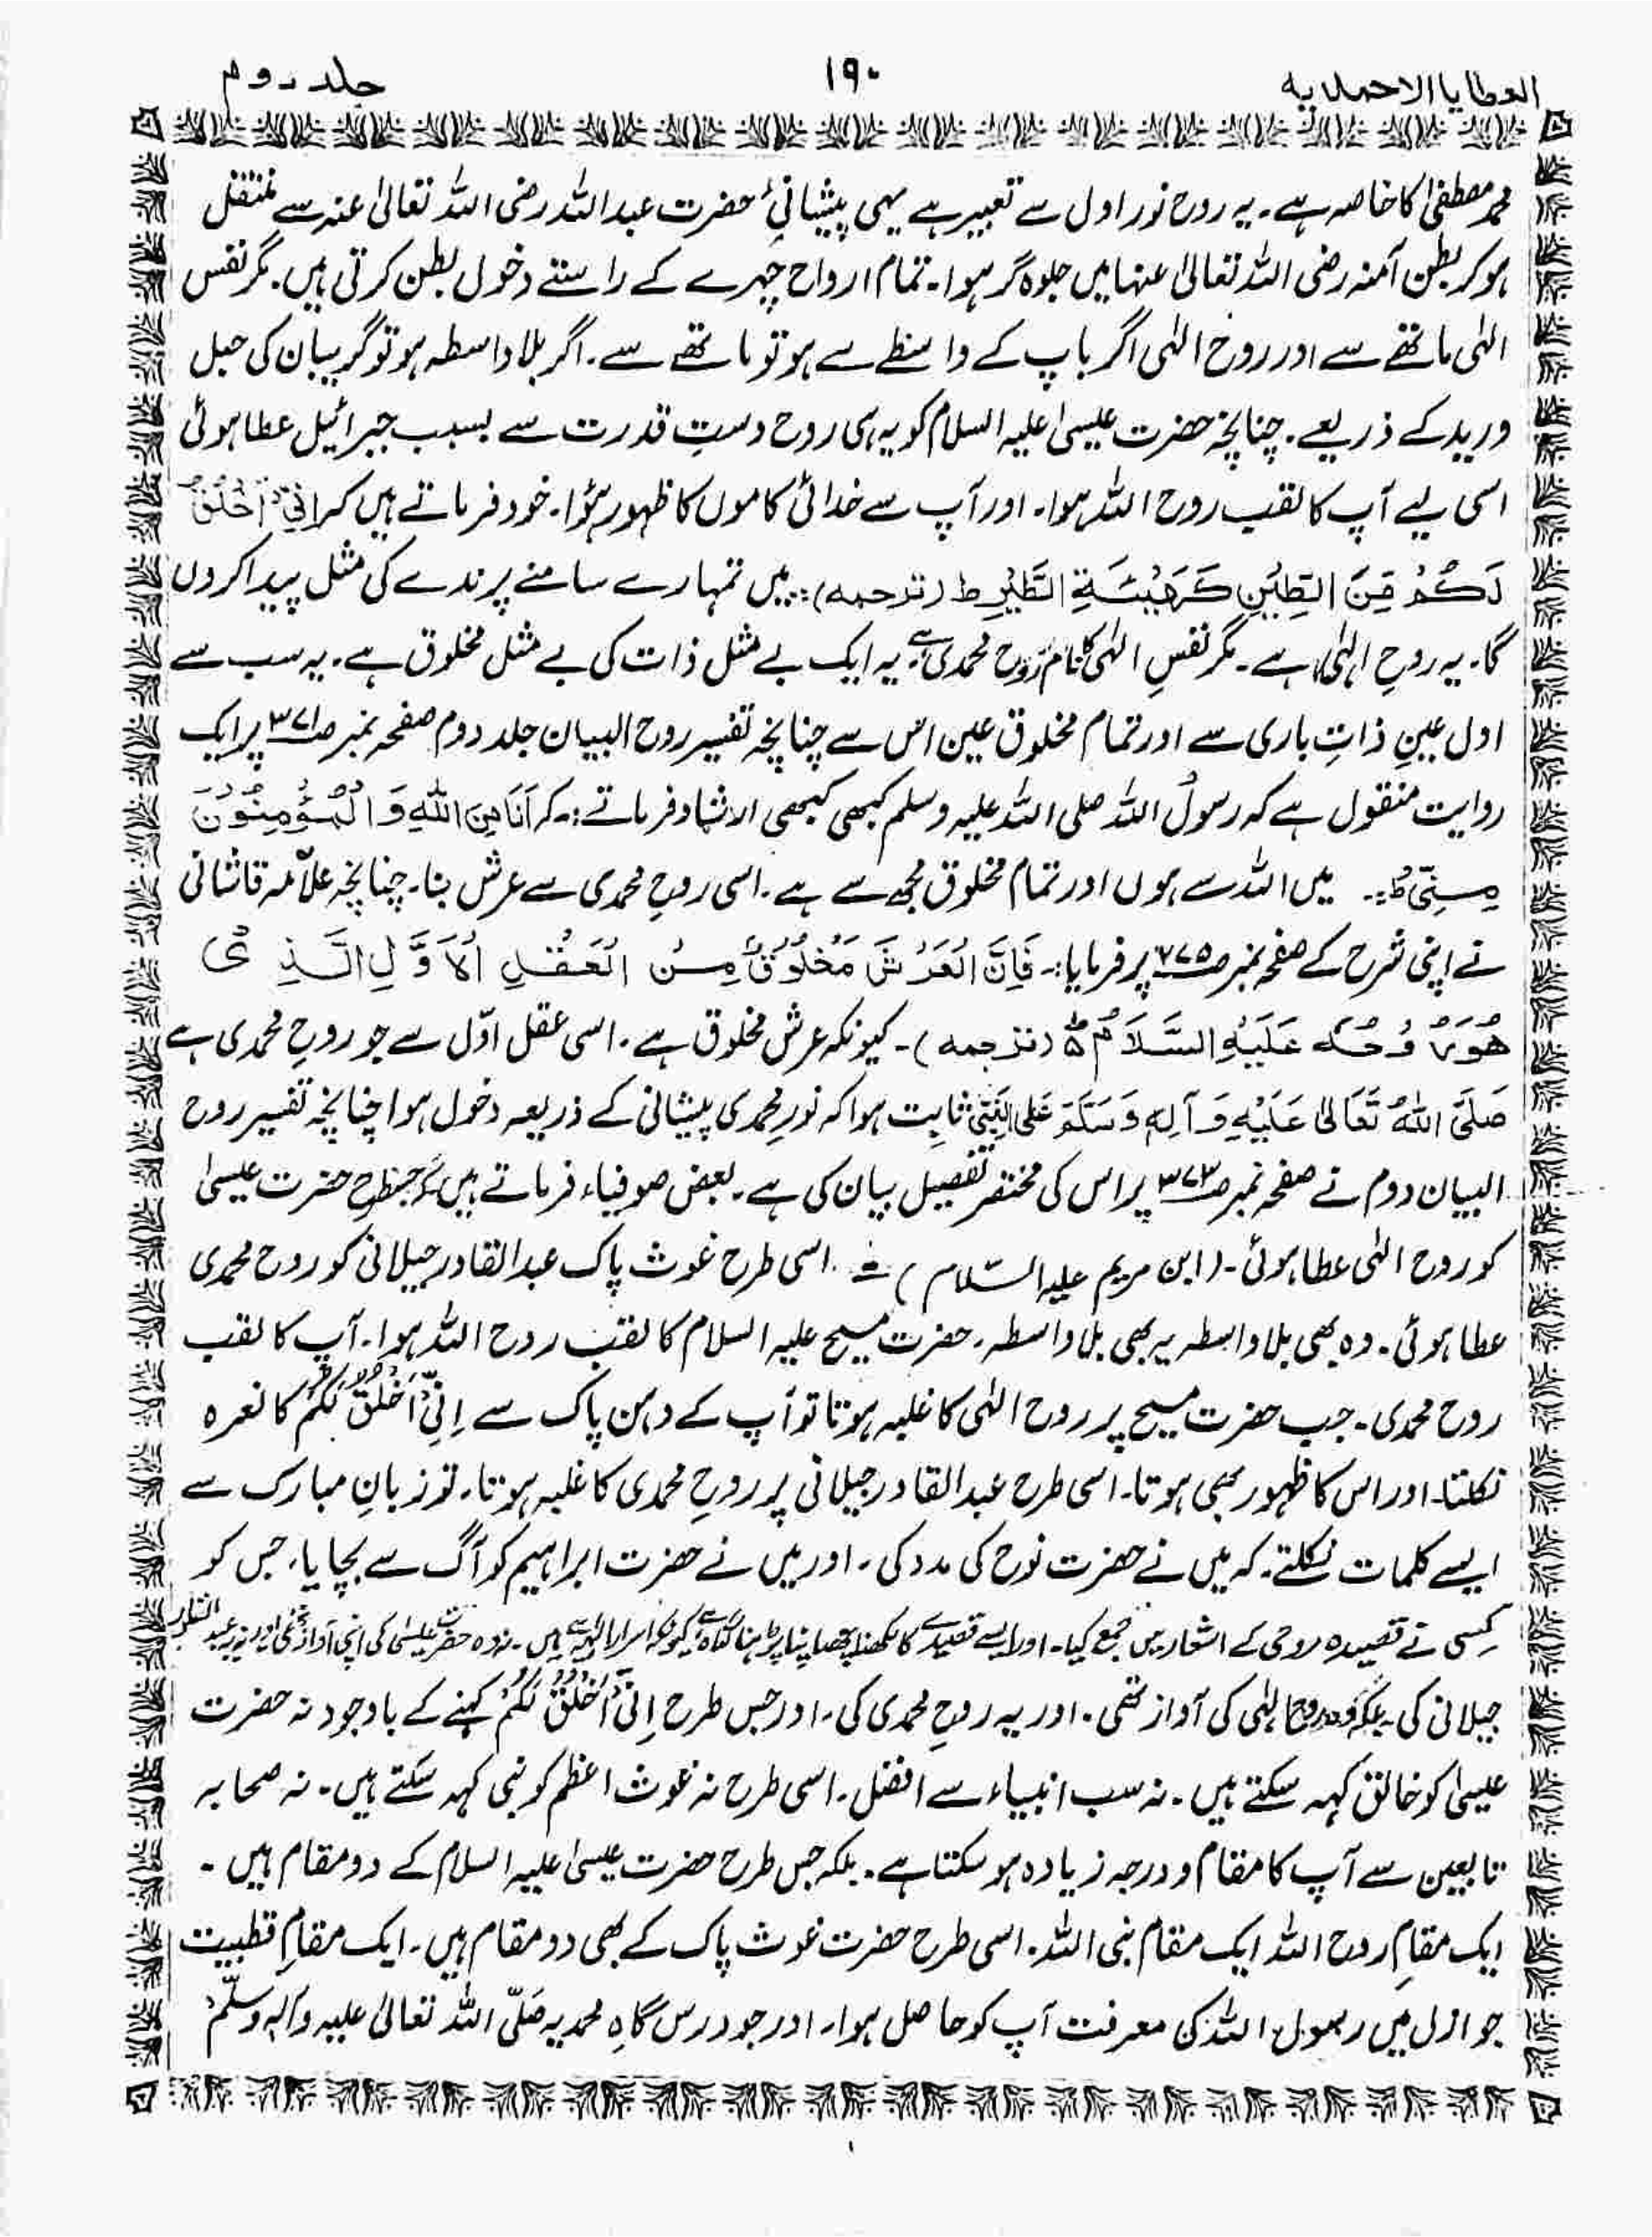 العطایا الاحمدیه ۱۹۰ جلد دوم
محمد مصطفیٰ کا خاصہ ہے۔ یہ روح نور اول سے تعبیر ہے یہی پیشانیٔ حضرت عبداللہ رضی اللہ تعالیٰ عنہ سے منتقل
ہو کر بطن آمنہ رضی اللہ تعالیٰ عنہا میں جلوہ گر ہوا۔ تمام ارواح چہرے کے راستے دخول بطن کرتی ہیں۔ مگر نفس
الہٰی ماتھے سے اور روح الہٰی اگر باپ کے واسطے سے ہو تو ماتھے سے۔ اگر بلا واسطہ ہو تو گریبان کی حبل
ورید کے ذریعے۔ چنانچہ حضرت عیسیٰ علیہ السلام کو یہ ہی روح دستِ قدرت سے بسبب جبرائیل عطا ہوئی
اسی لیے آپ کا لقب روح اللہ ہوا۔ اور آپ سے خدائی کاموں کا ظہور ہؤا۔ خود فرماتے ہیں کہ اِنِّیْۤ اَخْلُقُ
لَكُمْ مِّنَ الطِّیْنِ كَهَیْئَةِ الطَّیْرِ ط (ترجمہ):۔ میں تمہارے سامنے پرندے کی مثل پیدا کروں
گا۔ یہ روحِ الہٰی ہے۔ مگر نفسِ الہٰی کا نام روح محمدی ہے۔ یہ ایک بے مثل ذات کی بے مثل مخلوق ہے۔ یہ سب سے
اول عینِ ذاتِ باری سے اور تمام مخلوق عین اس سے چنانچہ تفسیر روح البیان جلد دوم صفحہ نمبر ص۳۷۱ پر ایک
روایت منقول ہے کہ رسولُ اللہ صلی اللہ علیہ وسلم کبھی کبھی ارشاد فرماتے:۔ کہ اَنَا مِنَ اللهِ وَ الْمُؤْمِنُوْنَ
مِنِّیْ ط:۔ میں اللہ سے ہوں اور تمام مخلوق مجھ سے ہے۔ اسی روحِ محمدی سے عرش بنا۔ چنانچہ علاّمہ قاشانی
نے اپنی شرح کے صفحہ نمبر ص۷۷۵ پر فرمایا:۔ فَاِنَّ الْعَرْشَ مَخْلُوْقٌ مِنَ الْعَقْلِ الْاَوَّلِ الَّذِیْ
هُوَ رُوْحُهٗ عَلَیْهِ السَّلَامُ ط (ترجمہ)۔ کیونکہ عرش مخلوق ہے۔ اسی عقل اوّل سے جو روحِ محمدی ہے
صَلَّی اللهُ تَعَالیٰ عَلَیْهِ وَ آلِهٖ وَسَلَّمَ عَلَی النَّبِیِّ ثابت ہوا کہ نورِ محمدی پیشانی کے ذریعہ دخول ہوا چنانچہ تفسیر روح
البیان دوم نے صفحہ نمبر ص۳۷۳ پر اس کی مختصر تفصیل بیان کی ہے۔ بعض صوفیاء فرماتے ہیں کہ جس طرح حضرت عیسیٰ
کو روح الہٰی عطا ہوئی۔ (ابن مریم علیہ السّلام) اسی طرح غوث پاک عبدالقادر جیلانی کو روح محمدی
عطا ہوئی۔ وہ بھی بلا واسطہ یہ بھی بلا واسطہ۔ حضرت مسیح علیہ السلام کا لقب روح اللہ ہوا۔ آپ کا لقب
روح محمدی۔ جب حضرت مسیح پر روح الہٰی کا غلبہ ہوتا تو آپ کے دہن پاک سے اِنِّیْۤ اَخْلُقُ لَكُمْ کا نعرہ
نکلتا۔ اور اس کا ظہور بھی ہوتا۔ اسی طرح عبدالقادر جیلانی پر روحِ محمدی کا غلبہ ہوتا۔ تو زبانِ مبارک سے
ایسے کلمات نکلتے۔ کہ میں نے حضرت نوح کی مدد کی۔ اور میں نے حضرت ابراہیم کو آگ سے بچایا۔ جس کو
کسی نے قصیدہ روحی کے اشعار میں جمع کیا۔ اور ایسے قصیدے کا لکھنا چھاپنا پڑھنا گناہ ہے کیونکہ اسرار الٰہیہ ہیں۔ نہ وہ حضرت عیسیٰ کی اپنی آواز تھی اور نہ یہ عبدالقادر
جیلانی کی بلکہ وہ روح الہٰی کی آواز تھی۔ اور یہ روحِ محمدی کی۔ اور جس طرح اِنِّیْۤ اَخْلُقُ لَكُمْ کہنے کے باوجود نہ حضرت
عیسیٰ کو خالق کہہ سکتے ہیں۔ نہ سب انبیاء سے افضل۔ اسی طرح نہ غوث اعظم کو نبی کہہ سکتے ہیں۔ نہ صحابہ
تابعین سے آپ کا مقام و درجہ زیادہ ہو سکتا ہے۔ بلکہ جس طرح حضرت عیسیٰ علیہ السلام کے دو مقام ہیں۔
ایک مقامِ روح اللہ ایک مقام نبی اللہ۔ اسی طرح حضرت غوث پاک کے بھی دو مقام ہیں۔ ایک مقامِ قطبیت
جو ازل میں رسول اللہ کی معرفت آپ کو حاصل ہوا۔ اور جو درس گاہِ محمدیہ صَلّی اللہ تعالیٰ علیہ وآلہ وسلّم